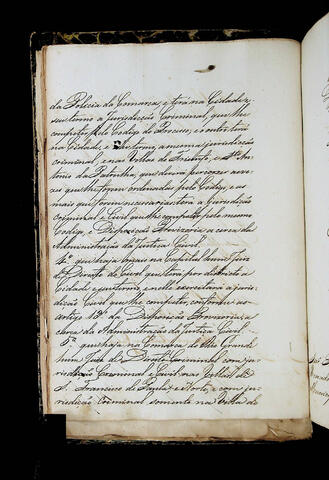 da Policia da Comarca e terá na Cidade, e
seu termo a Jurisdicção Criminal, que lhe
competir pelo Codigo do Processo; e o outro terá
na Cidade, e seu termo, a mesma jurisdicção
criminal, e nas Villas do Triunfo, e Sto An-
tonio da Patrulha, que deverá percorrer as ve-
zes que lhe forem ordenadas pelo Codigo, e as
mais que forem necessarias terá a Jurisdicção
Criminal e Civil que lhe competir pelo mesmo
Codigo, e Disposição Provisoria acerca da
Administração da Justiça Civil.
4º que haja assim na Capital hum Juiz
de Direito do Civel, que terá por districto a
Cidade e seu termo, e nelle exercitará a juris-
dicção Civil que lhe competir, conforme ao
artigo 19º da Disposição Provisoria, a
cerca da Administração da Justiça Civil.
5º que haja na Comarca do Rio Grande
hum Juiz de Direito Criminal com ju-
risdicção Criminal e Civil nas Villas de
S. Francisco de Paula, e Norte, e com ju-
risdicção Criminal somente na Villa do